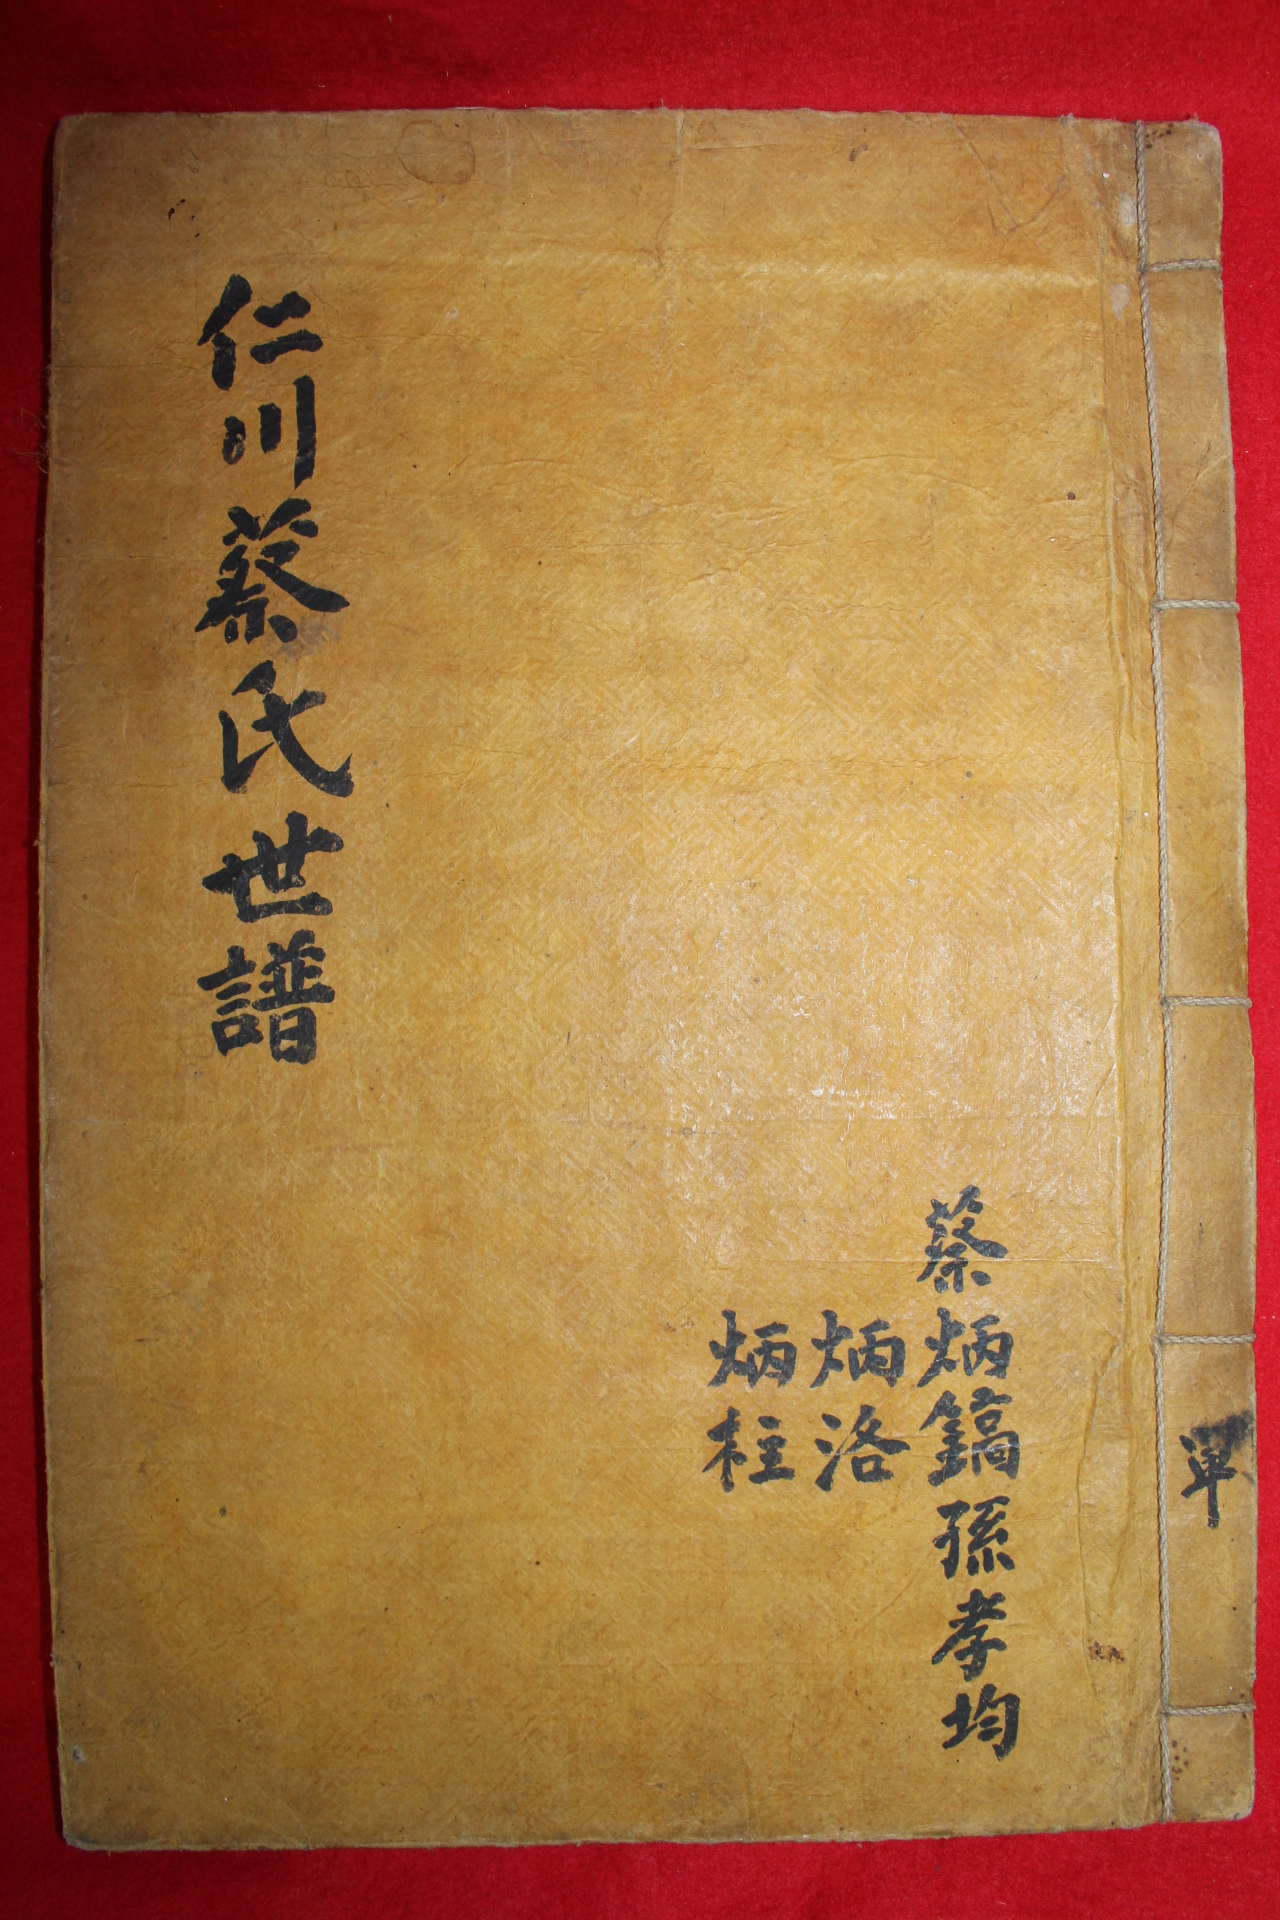 單
蔡炳鎬孫孝均
炳洛
炳柱
仁川蔡氏世譜